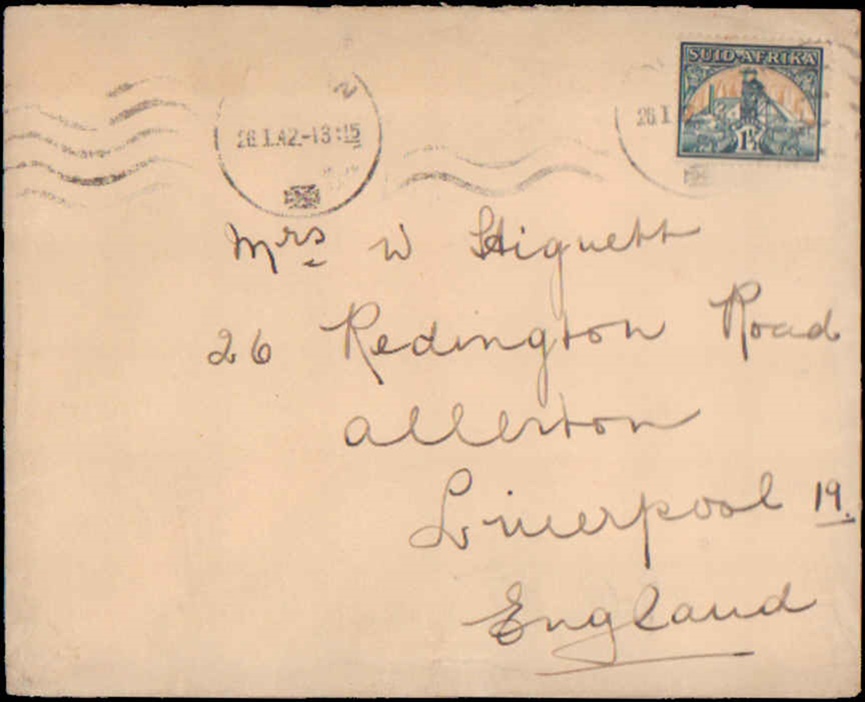 SUID-AFRIKA
1½
26.I.42.-13:15
26.I
Mrs W Higuett
26 Redington Road
Allerton
Liverpool 19.
England